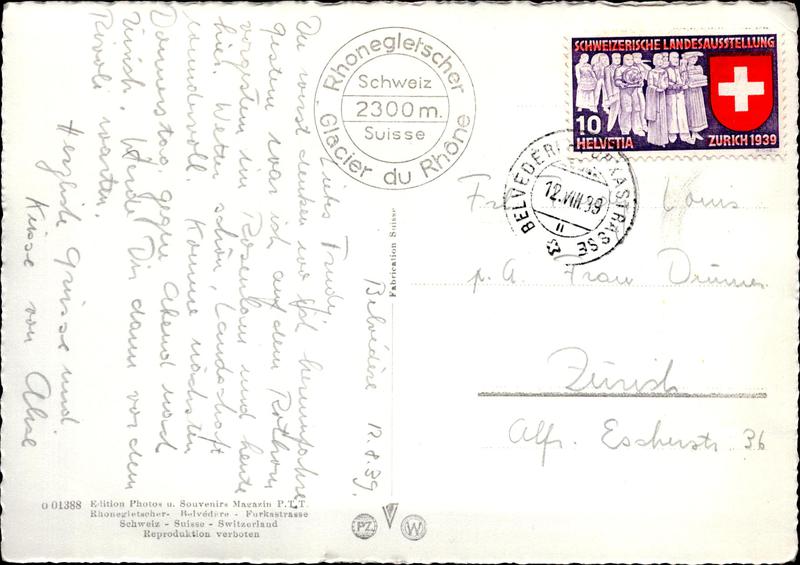 Belvédère 12.8.39.
Liebes Trudy!
Du wirst denken wo ich herumfahre
gestern war ich auf dem Rothorn
vorgestern im Rosenlaui und heute
hier. Wetter schön, Landschaft
wundervoll. Komme nächsten
Donnerstag gegen Abend nach
Zürich. Werde Dir dann vor dem
Rivoli warten.
Herzliche Grüsse und
Küsse von
Rhonegletscher
Schweiz
2300 m.
Suisse
Glacier du Rhône
SCHWEIZERISCHE LANDESAUSSTELLUNG
10
HELVETIA ZURICH 1939
BELVEDERE FURKASTRASSE
12.VIII.39
Louis
p. A. Frau
Zürich
Alfr. Escherstr 36
Fabrication Suisse
o 01388 Edition Photos u. Souvenirs Magazin P.T.T.
Rhonegletscher- Belvédère - Furkastrasse
Schweiz - Suisse - Switzerland
Reproduktion verboten
PZ W